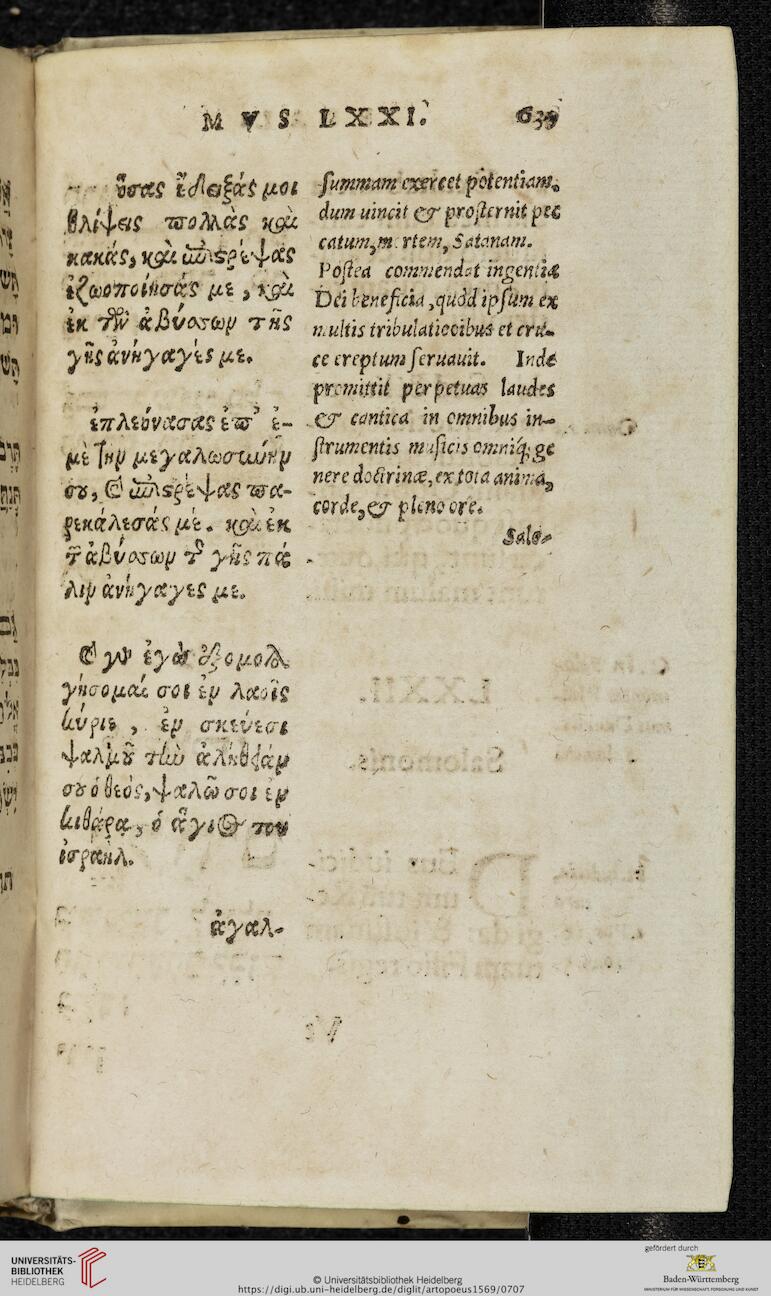 MVS LXXI. 639
ὅσας ἔδειξάς μοι
θλίψεις πολλὰς καὶ
κακάς, καὶ ἐπιςρέψας
ἐζωοποίησάς με, καὶ
ἐκ τῶν ἀβύσσων τῆς
γῆς ἀνήγαγές με.
ἐπλεόνασας ἐπ' ἐ-
μὲ τὴν μεγαλωσύνην
σου, καὶ ἐπιςρέψας πα-
ρεκάλεσάς μέ. καὶ ἐκ
τῶν ἀβύσσων τῆς γῆς πά
λιν ἀνήγαγες με.
καὶ γὰρ ἐγὼ ἐξομολο
γήσομαί σοι ἐν λαοῖς
κύριε, ἐν σκεύεσι
ψαλμοῦ τὴν ἀλήθειάν
σου ὁ θεός, ψαλῶ σοι ἐν
κιθάρᾳ, ὁ ἅγιος του
ἰσραήλ.
ἀγαλ-
summam exercet potentiam,
dum uincit & prosternit pec
catum, mortem, Satanam.
Postea commendat ingentia
Dei beneficia, quòd ipsum ex
multis tribulatiocibus et cru-
ce ereptum seruauit. Inde
promittit perpetuas laudes
& cantica in omnibus in-
strumentis musicis omniq; ge
nere doctrinæ, ex tota anima,
corde, & pleno ore.
Salo-
UNIVERSITÄTS-
BIBLIOTHEK
HEIDELBERG
© Universitätsbibliothek Heidelberg
https://digi.ub.uni-heidelberg.de/diglit/artopoeus1569/0707
gefördert durch
Baden-Württemberg
MINISTERIUM FÜR WISSENSCHAFT, FORSCHUNG UND KUNST